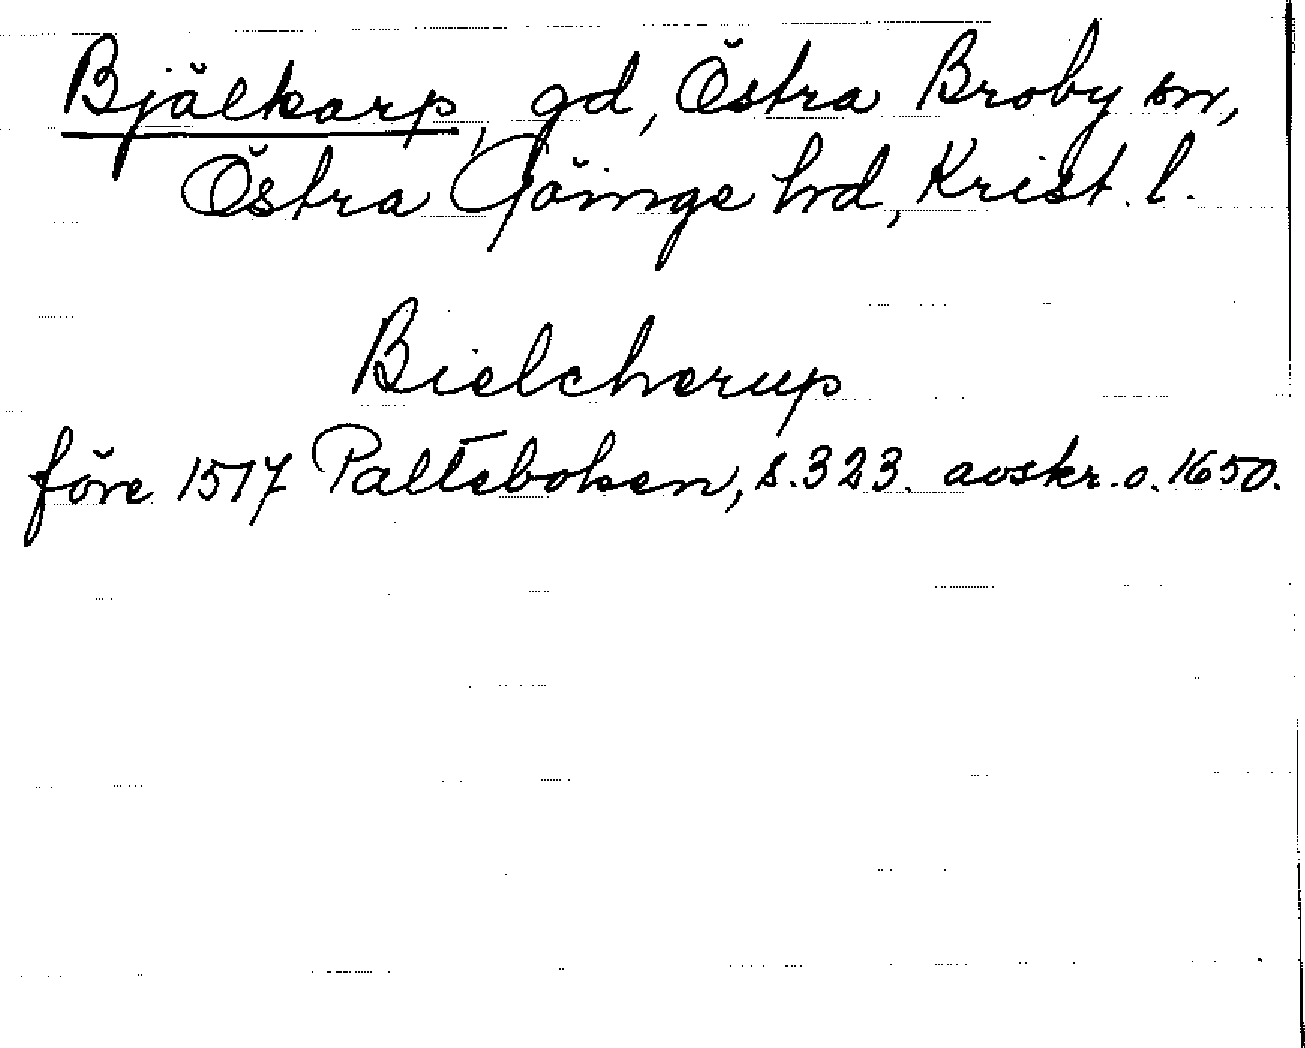 Bjälkarp, gd, Östra Broby sn,
Östra Göinge hd, Krist. l.
Bielcherup
före 1517 Palteboken, s. 323. avskr. o. 1650.